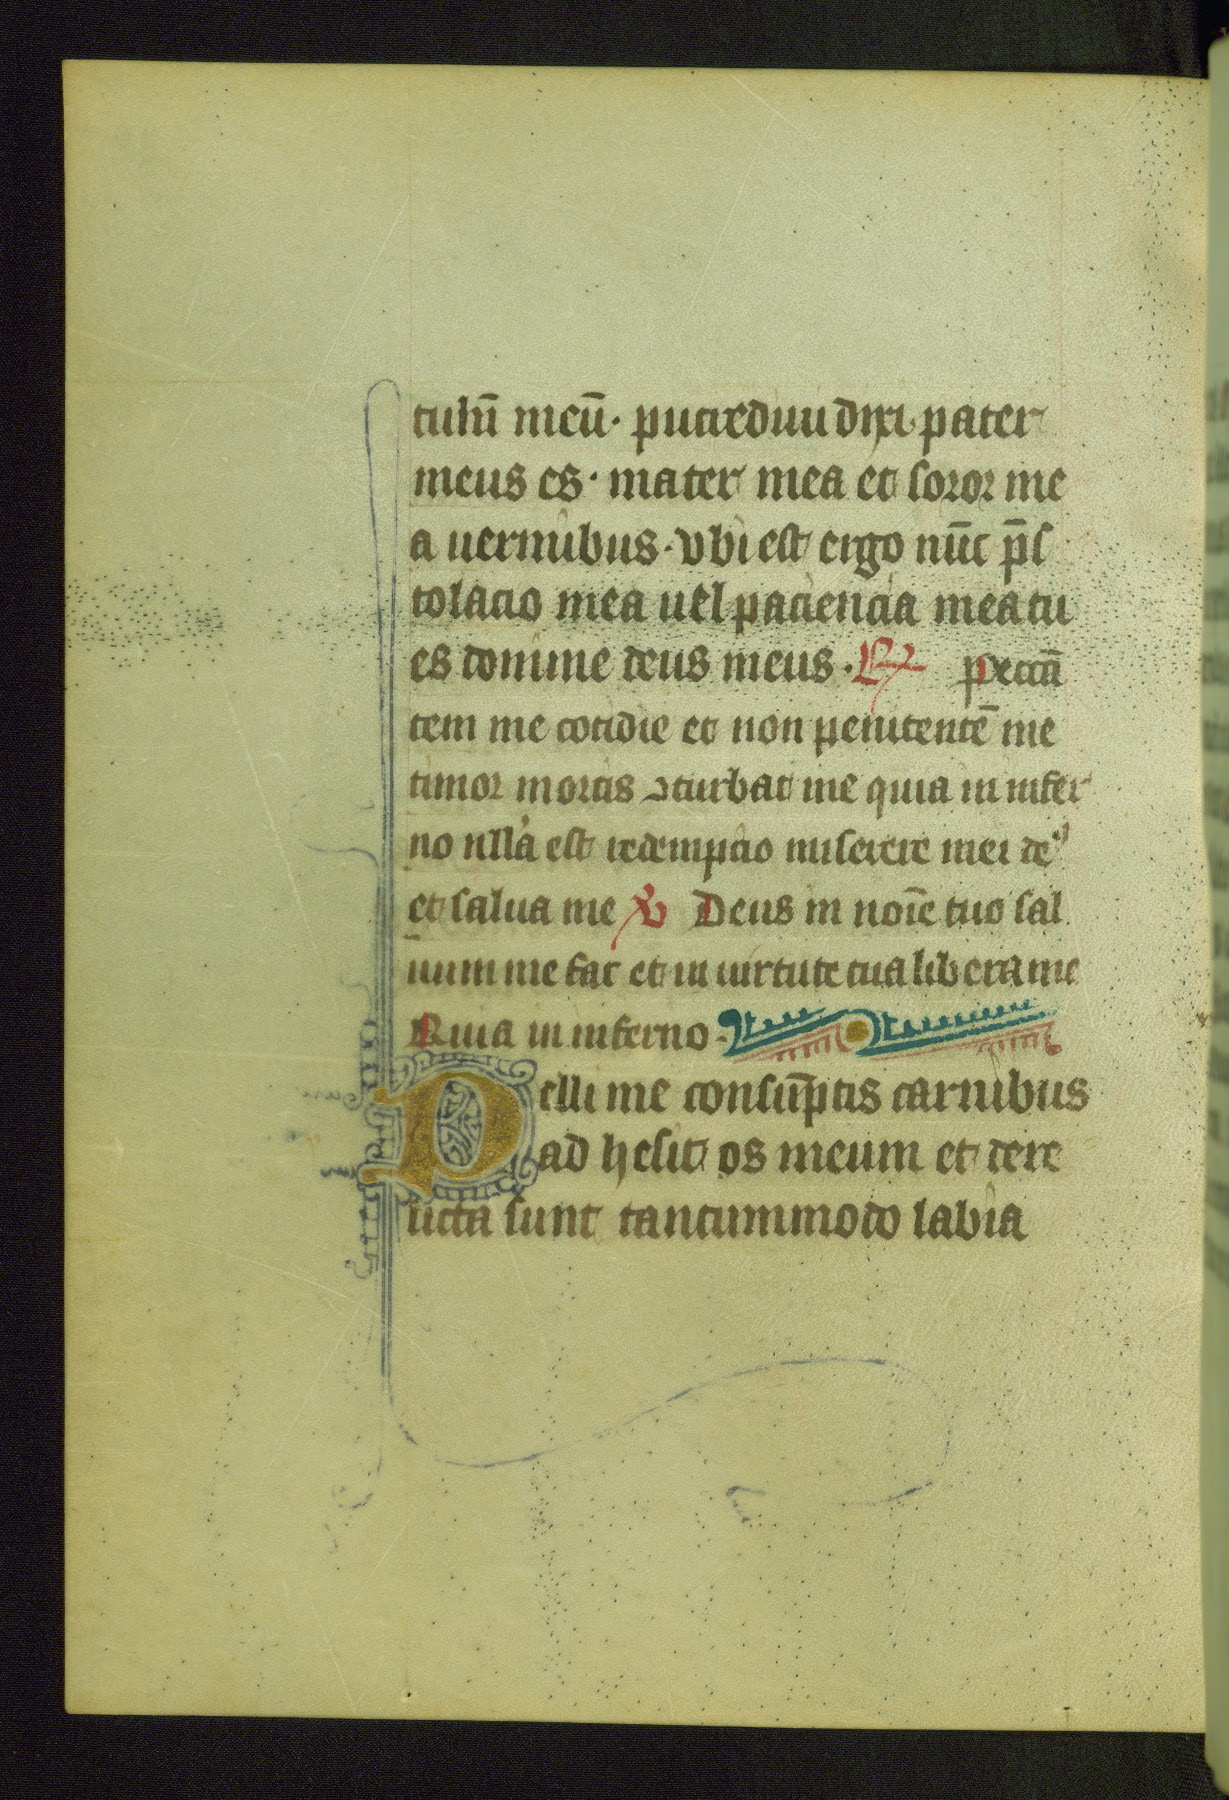 tulū meū· putredini dixi pater
meus es· mater mea et soror me
a uermibus· vbi est ergo nūc p̄s
tolacio mea uel paciencia mea tu
es domine deus meus· R̸ peccā
tem me cotidie et non penitentē me
timor mortis ꝯturbat me quia in infer
no nlla est redempcio miserere mei deꝰ
et salua me V̸ Deus in noīe tuo sal
uum me fac et in uirtute tua libera me
Quia in inferno·
Pelli me consūptis carnibus
ad hesit os meum et dere
licta sunt tantummodo labia